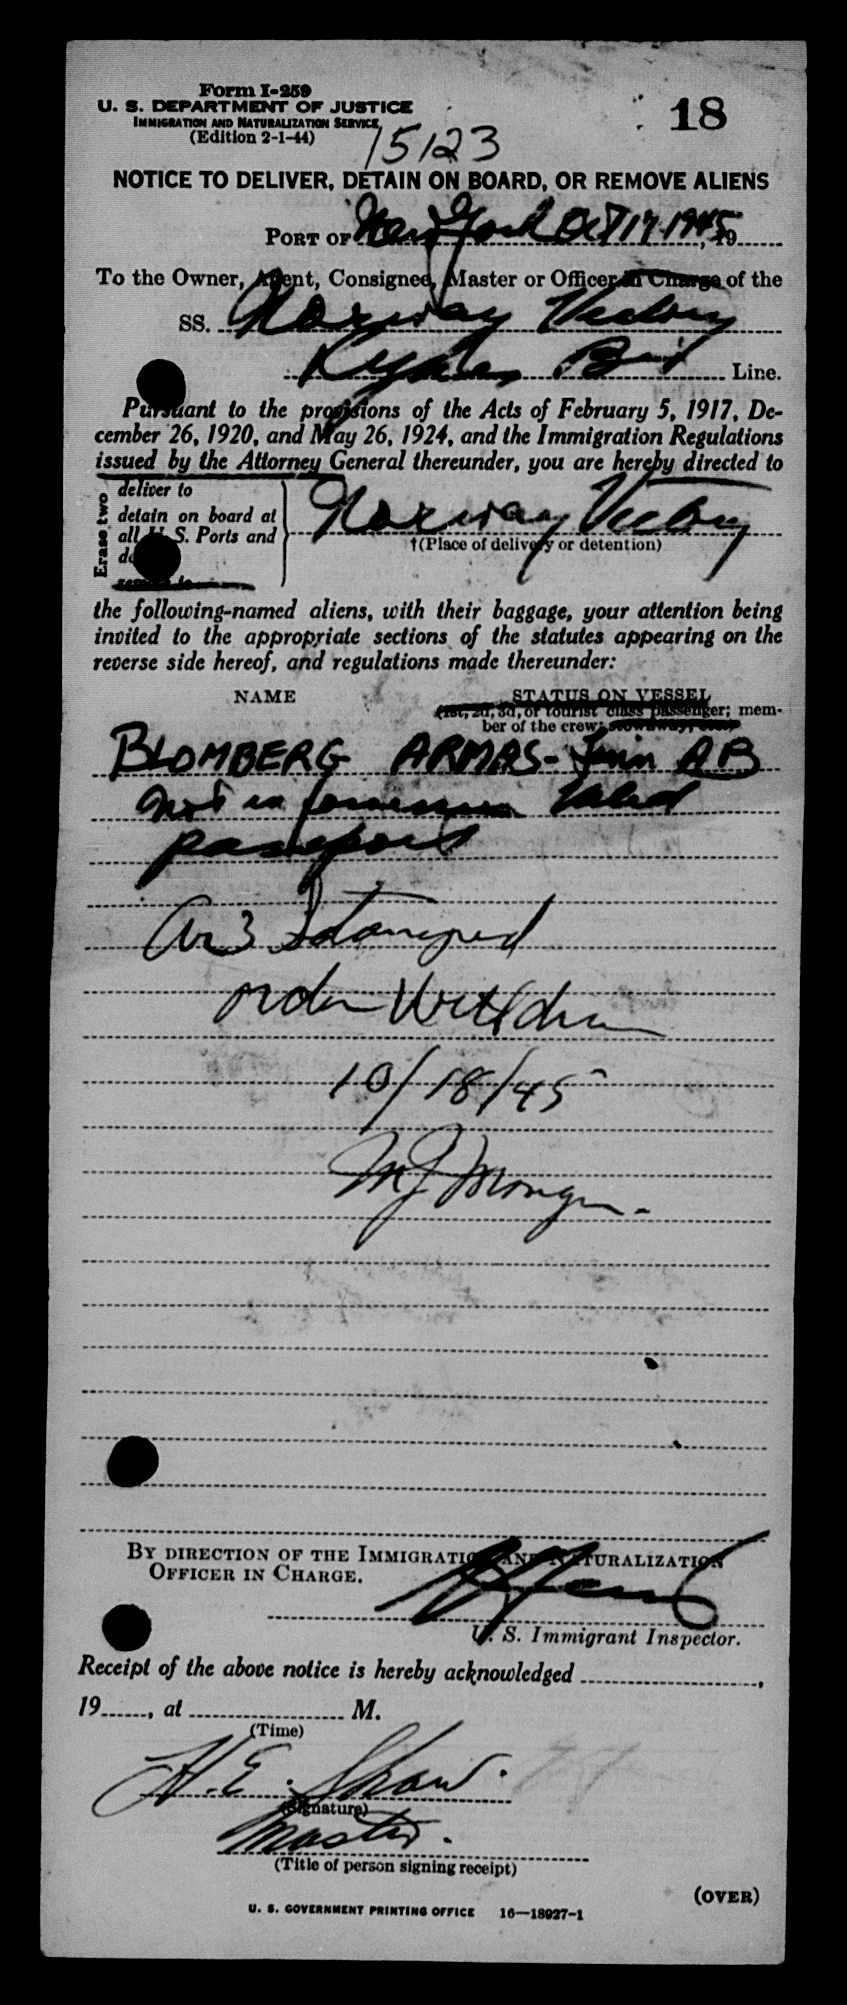 Form I-259
U. S. DEPARTMENT OF JUSTICE
IMMIGRATION AND NATURALIZATION SERVICE
(Edition 2-1-44)
18
15123
NOTICE TO DELIVER, DETAIN ON BOARD, OR REMOVE ALIENS
PORT OF New York Oct 17 1945, 19
To the Owner, Agent, Consignee, Master or Officer in Charge of the
SS. Norway Victory
Line.
Pursuant to the provisions of the Acts of February 5, 1917, De-
cember 26, 1920, and May 26, 1924, and the Immigration Regulations
issued by the Attorney General thereunder, you are hereby directed to
Erase two
deliver to
detain on board at
all U. S. Ports and
Norway Victory
†(Place of delivery or detention)
remove to
the following-named aliens, with their baggage, your attention being
invited to the appropriate sections of the statutes appearing on the
reverse side hereof, and regulations made thereunder:
NAME
STATUS ON VESSEL
(1st, 2d, 3d, or tourist class passenger; mem-
ber of the crew; stowaway, etc.)
BLOMBERG ARMAS- Finn AB
not in possession valid
passport
Ar3 Stamped
order Withdrawn
10/18/45
BY DIRECTION OF THE IMMIGRATION AND NATURALIZATION
OFFICER IN CHARGE.
U. S. Immigrant Inspector.
Receipt of the above notice is hereby acknowledged ,
19 , at M.
(Time)
H. E. Shaw.
(Signature)
Master.
(Title of person signing receipt)
(OVER)
U. S. GOVERNMENT PRINTING OFFICE 16—18927-1